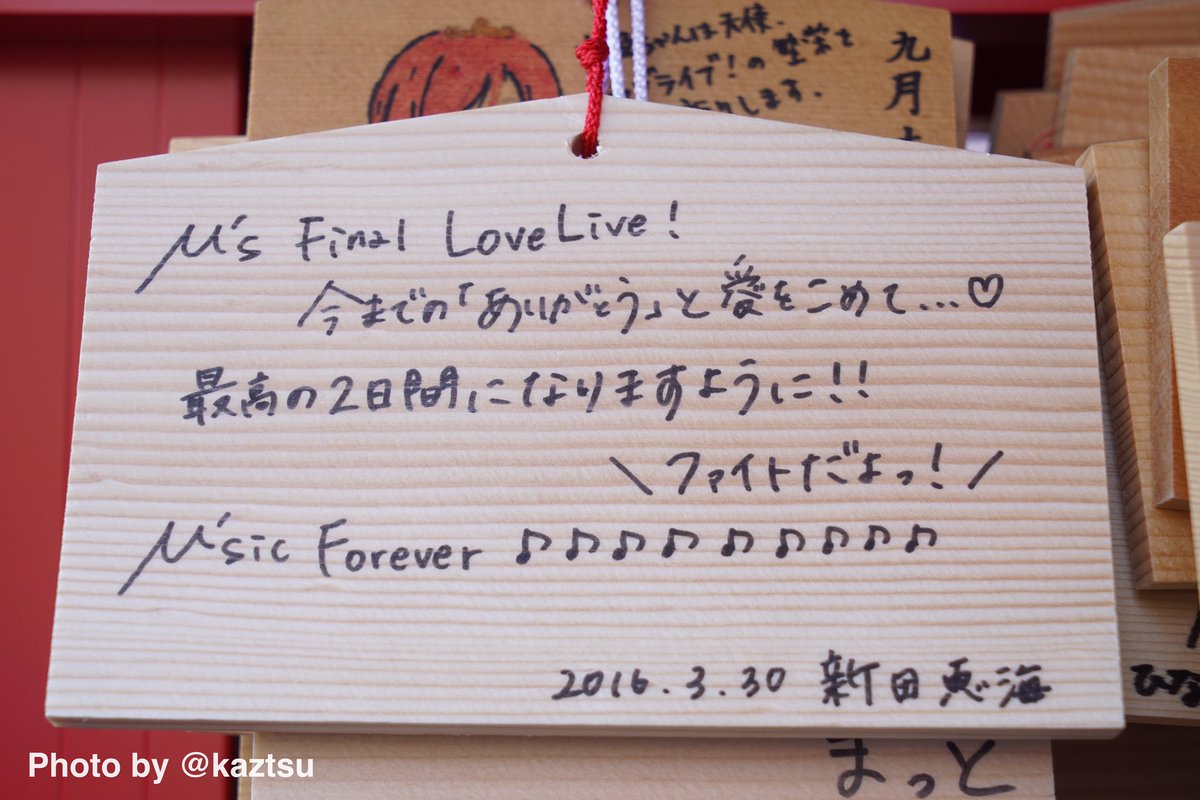 ちゃんは天使。
ライブ!の繁栄を
します。
九月
μ's Final LoveLive!
今までの「ありがとう」と愛をこめて…♡
最高の2日間になりますように!!
\ファイトだよっ!/
μ'sic Forever ♪♪♪♪♪♪♪♪♪
2016.3.30 新田恵海
まっと
Photo by @kaztsu